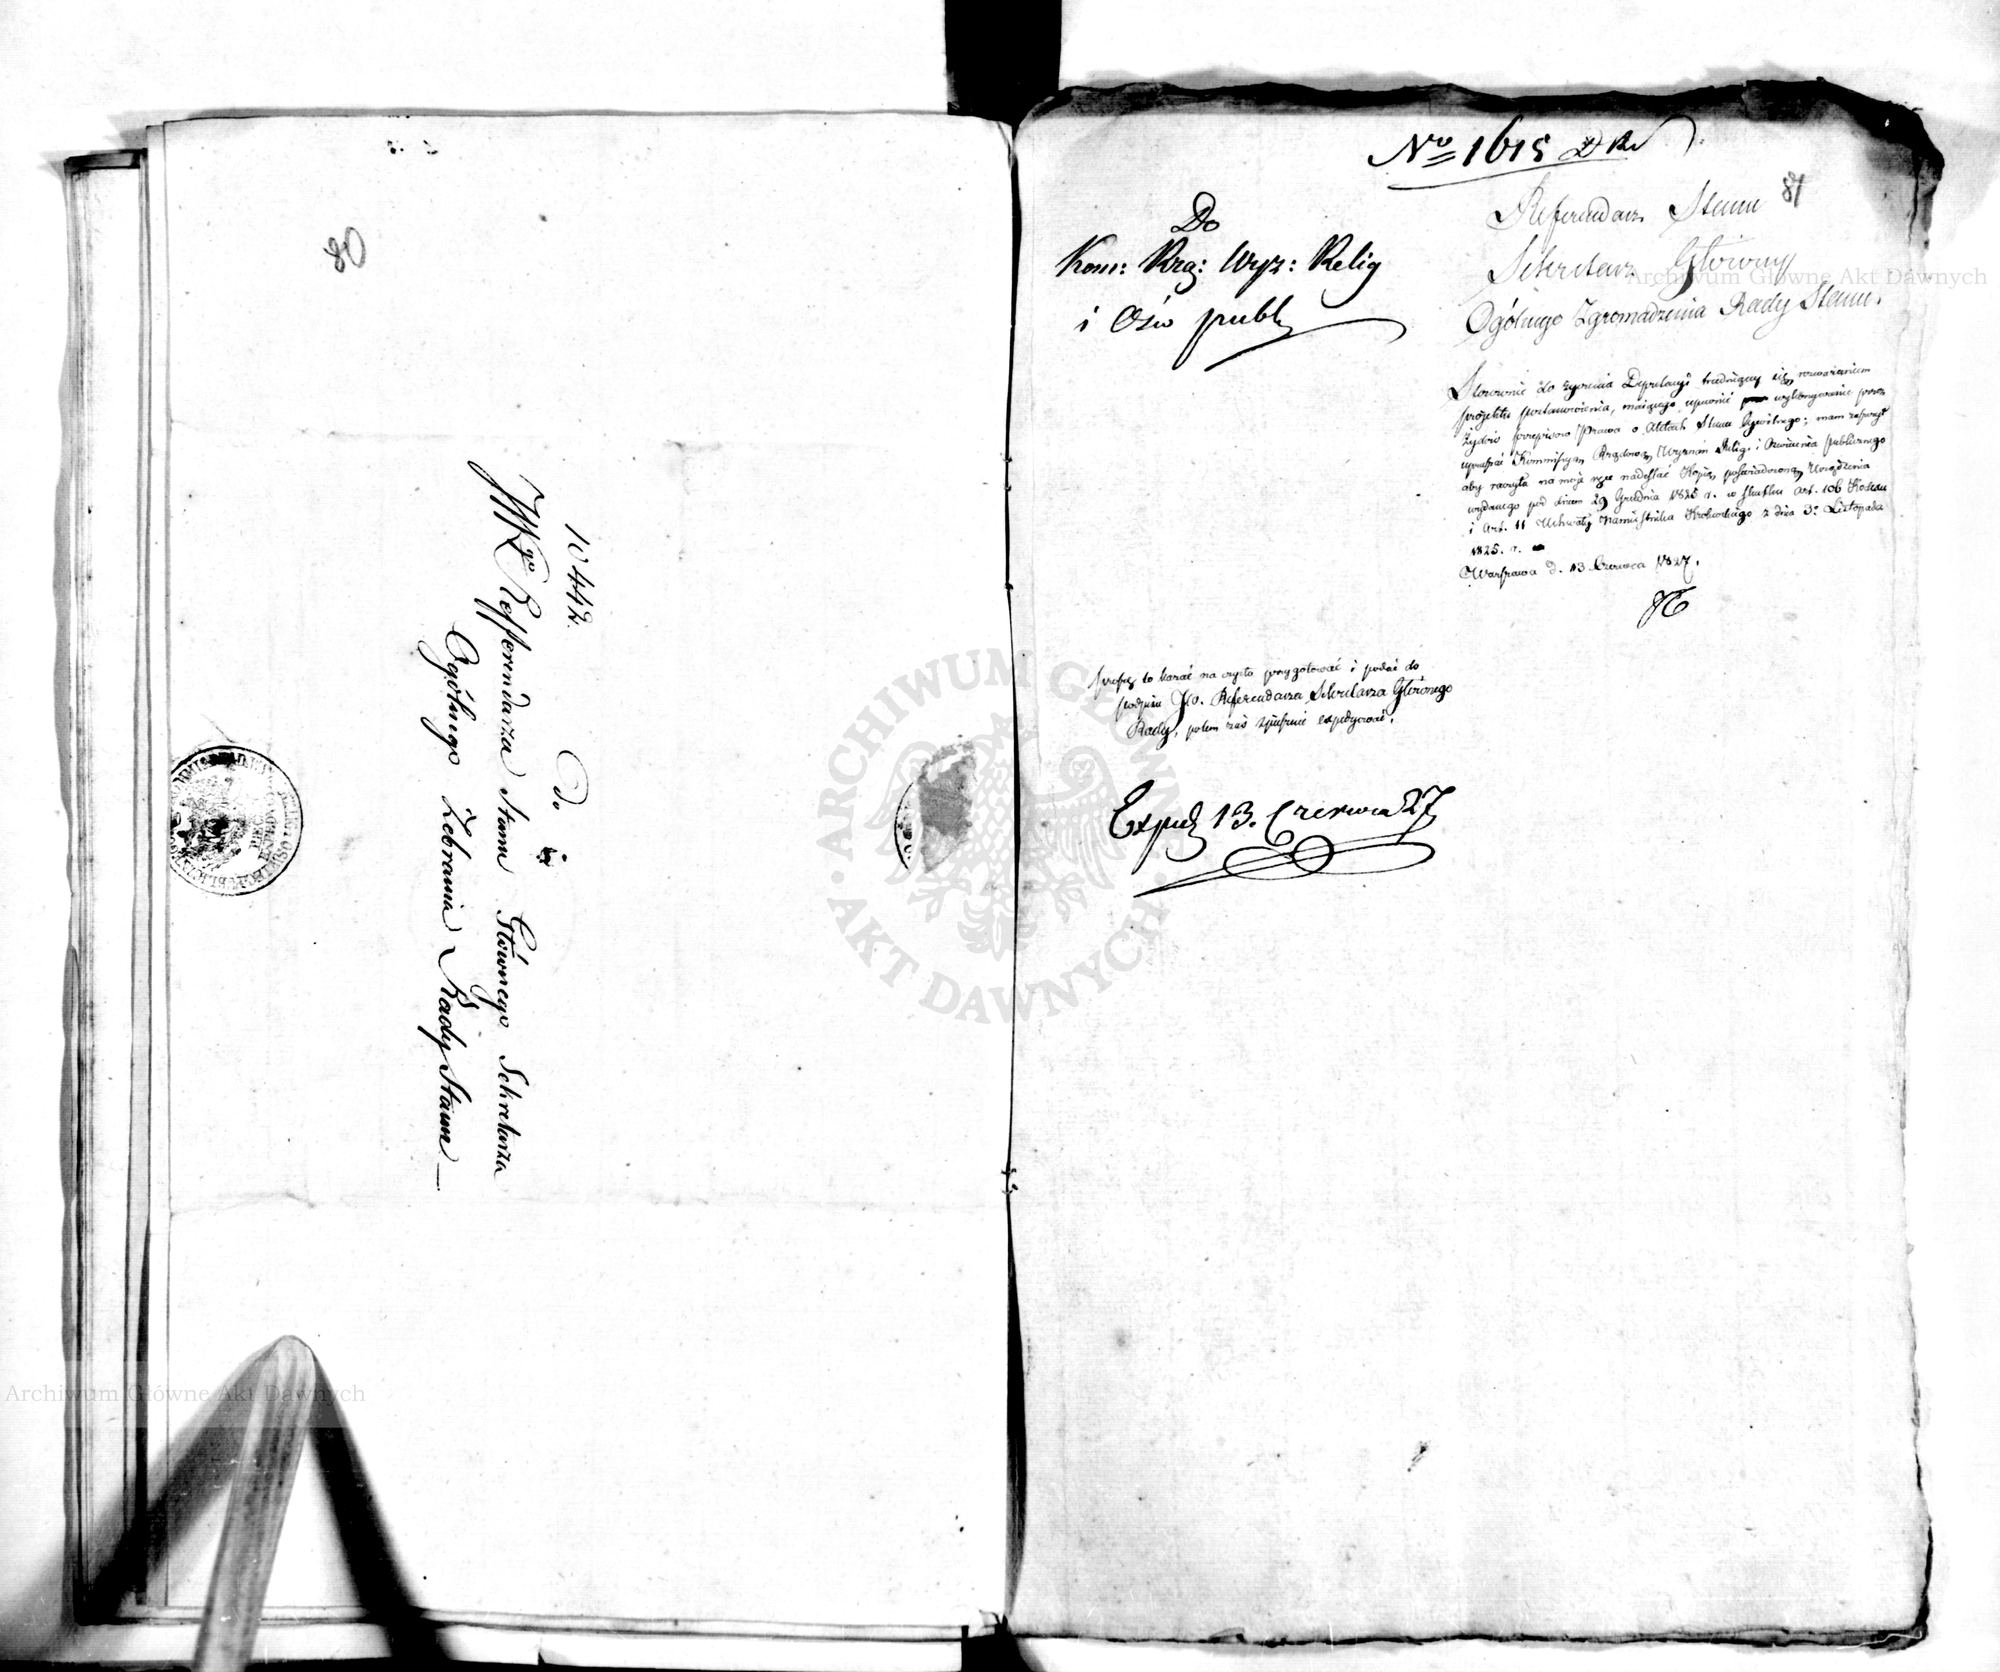 80
10442.
Do
JWgo Refferendarza Stanu Głównego Sekretarza
Ogólnego Zebrania Rady Stanu
No 1615 DR
81
Do
Kom: Rzą: Wyz: Relig
i Ośw publ
Referendarz Stanu
Sekretarz Główny
Ogólnego Zgromadzenia Rady Stanu.
Stosownie do życzenia Deputacyi trudniącey się rozważeniem
projektu postanowienia, maiącego upewnić wylegitymowanie przez
Żydów przepisow Prawa o Aktach Stanu Cywilnego; mam zaszczyt
upraszać Kommissyą Rządową Wyznań Relig: i Oświecenia publicznego
aby raczyła na moje ręce nadesłać Kopią poświadczoną Urządzenia
wydanego pod dniem 29 Grudnia 1825 r. w skutku art. 106 Kodexu
i Art. 11 Uchwały Namiestnika Krolewskiego z dnia 3o Listopada
1825. r.
Warszawa d. 13 Czerwca 1827.
proszę to kazać na czysto przygotować i podać do
podpisu JW. Referendarza Sekretarza Głównego
Rady, potem zaś spiesznie expedyować.
Exped 13. Czerwca 27
Archiwum Główne Akt Dawnych
ARCHIWUM GŁÓWNE
AKT DAWNYCH
Archiwum Główne Akt Dawnych